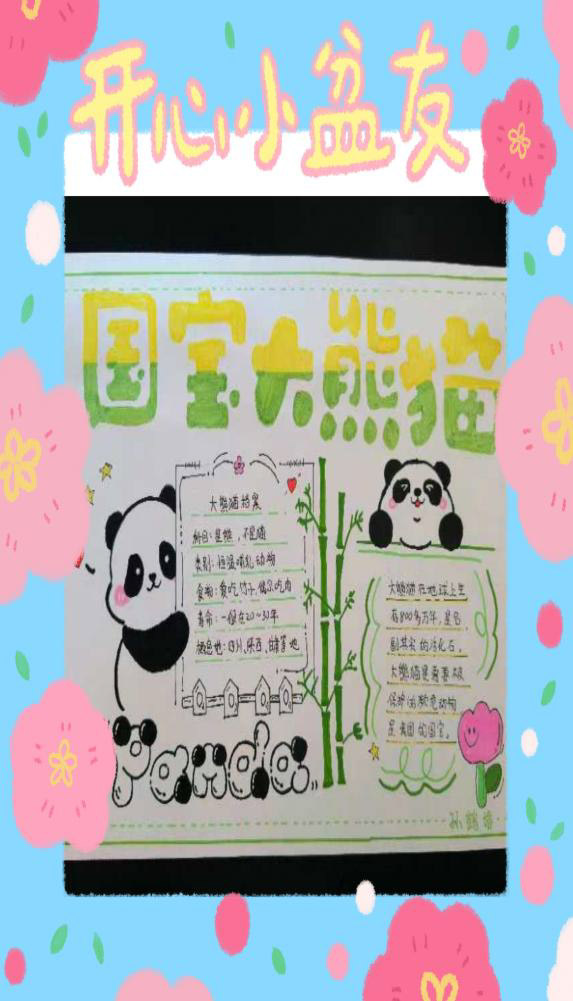 开心小盆友
国宝大熊猫
大熊猫档案
科目：是熊，不是猫
类别：恒温哺乳动物
食物：爱吃竹子，偶尔吃肉
寿命：一般在20～30年
栖息地：四川，陕西，甘肃等地
Panda
大熊猫在地球上生
存800多万年，是名
副其实的活化石，
大熊猫是需要被
保护的濒危动物
是我国的国宝。
孙